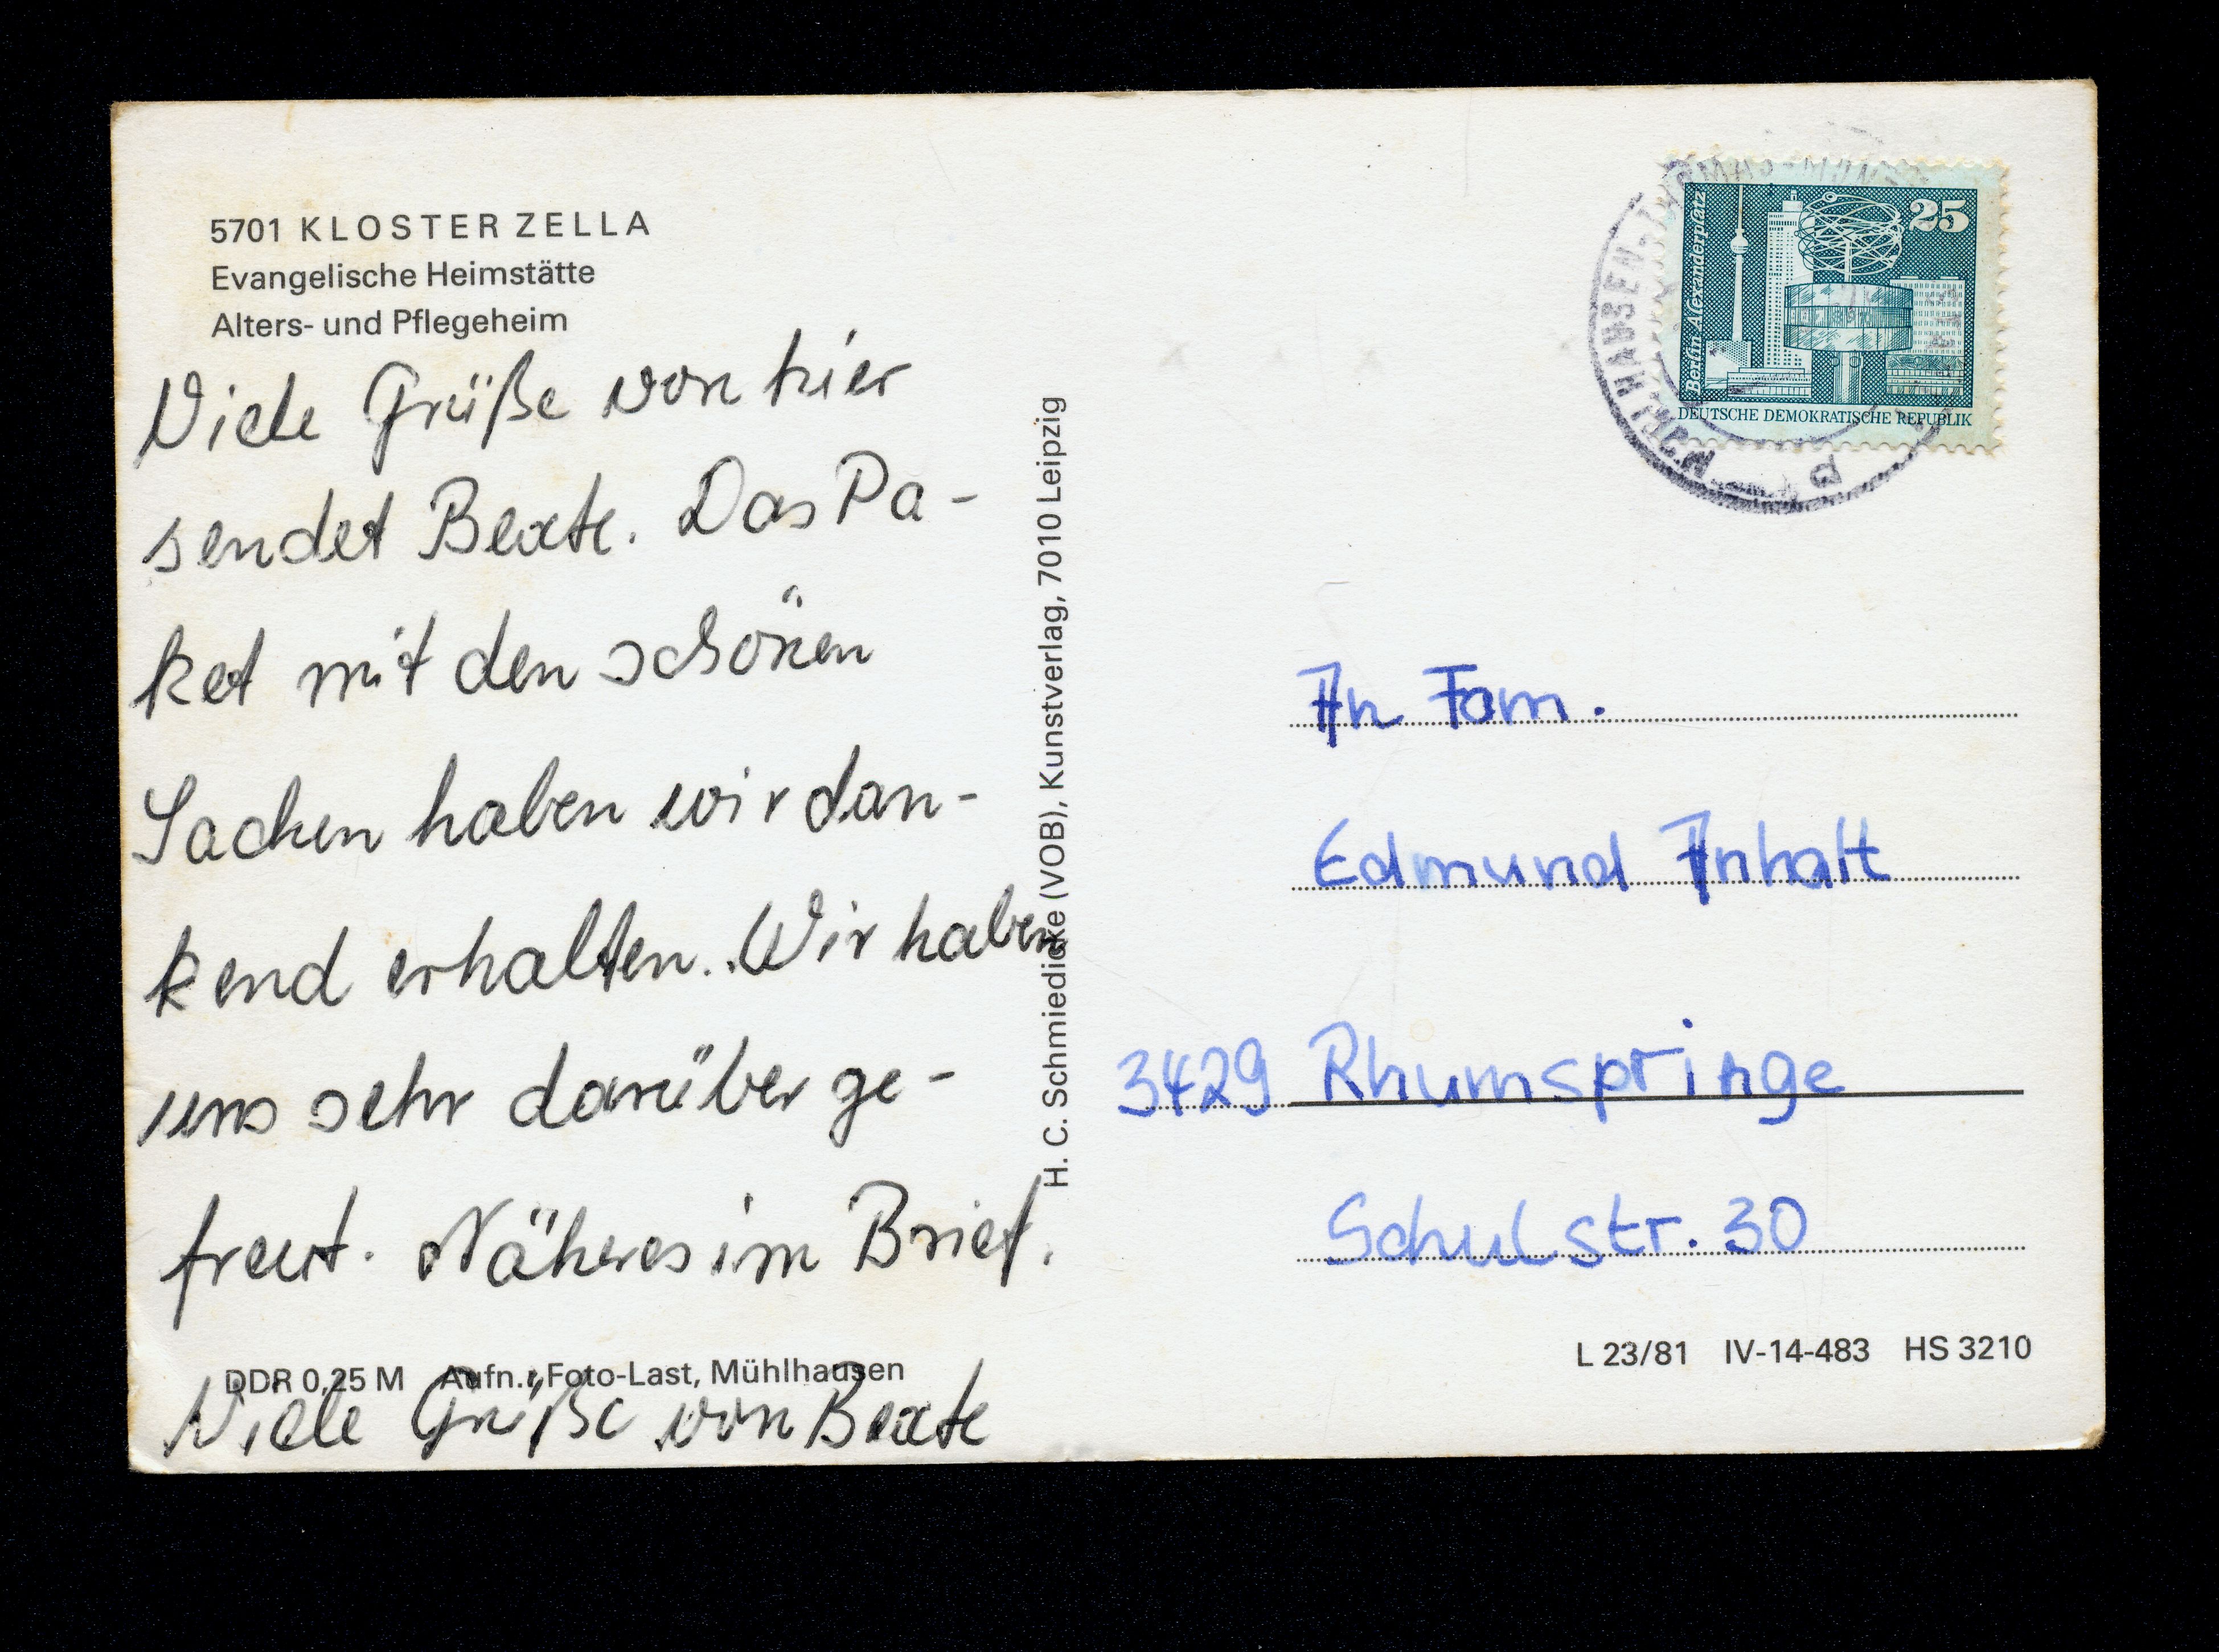 5701 KLOSTER ZELLA
Evangelische Heimstätte
Alters- und Pflegeheim
Viele Grüße von hier
sendet Beate. Das Pa-
ket mit den schönen
Sachen haben wir dan-
kend erhalten. Wir haben
uns sehr darüber ge-
freut. Näheres im Brief.
DDR 0,25 M Aufn.: Foto-Last, Mühlhausen
Viele Grüße von Beate
H. C. Schmiedicke (VOB), Kunstverlag, 7010 Leipzig
25
Berlin-Alexanderplatz
DEUTSCHE DEMOKRATISCHE REPUBLIK
MÜHLHAUSEN
An Fam.
Edmund Anhalt
3429 Rhumspringe
Schulstr. 30
L 23/81 IV-14-483 HS 3210